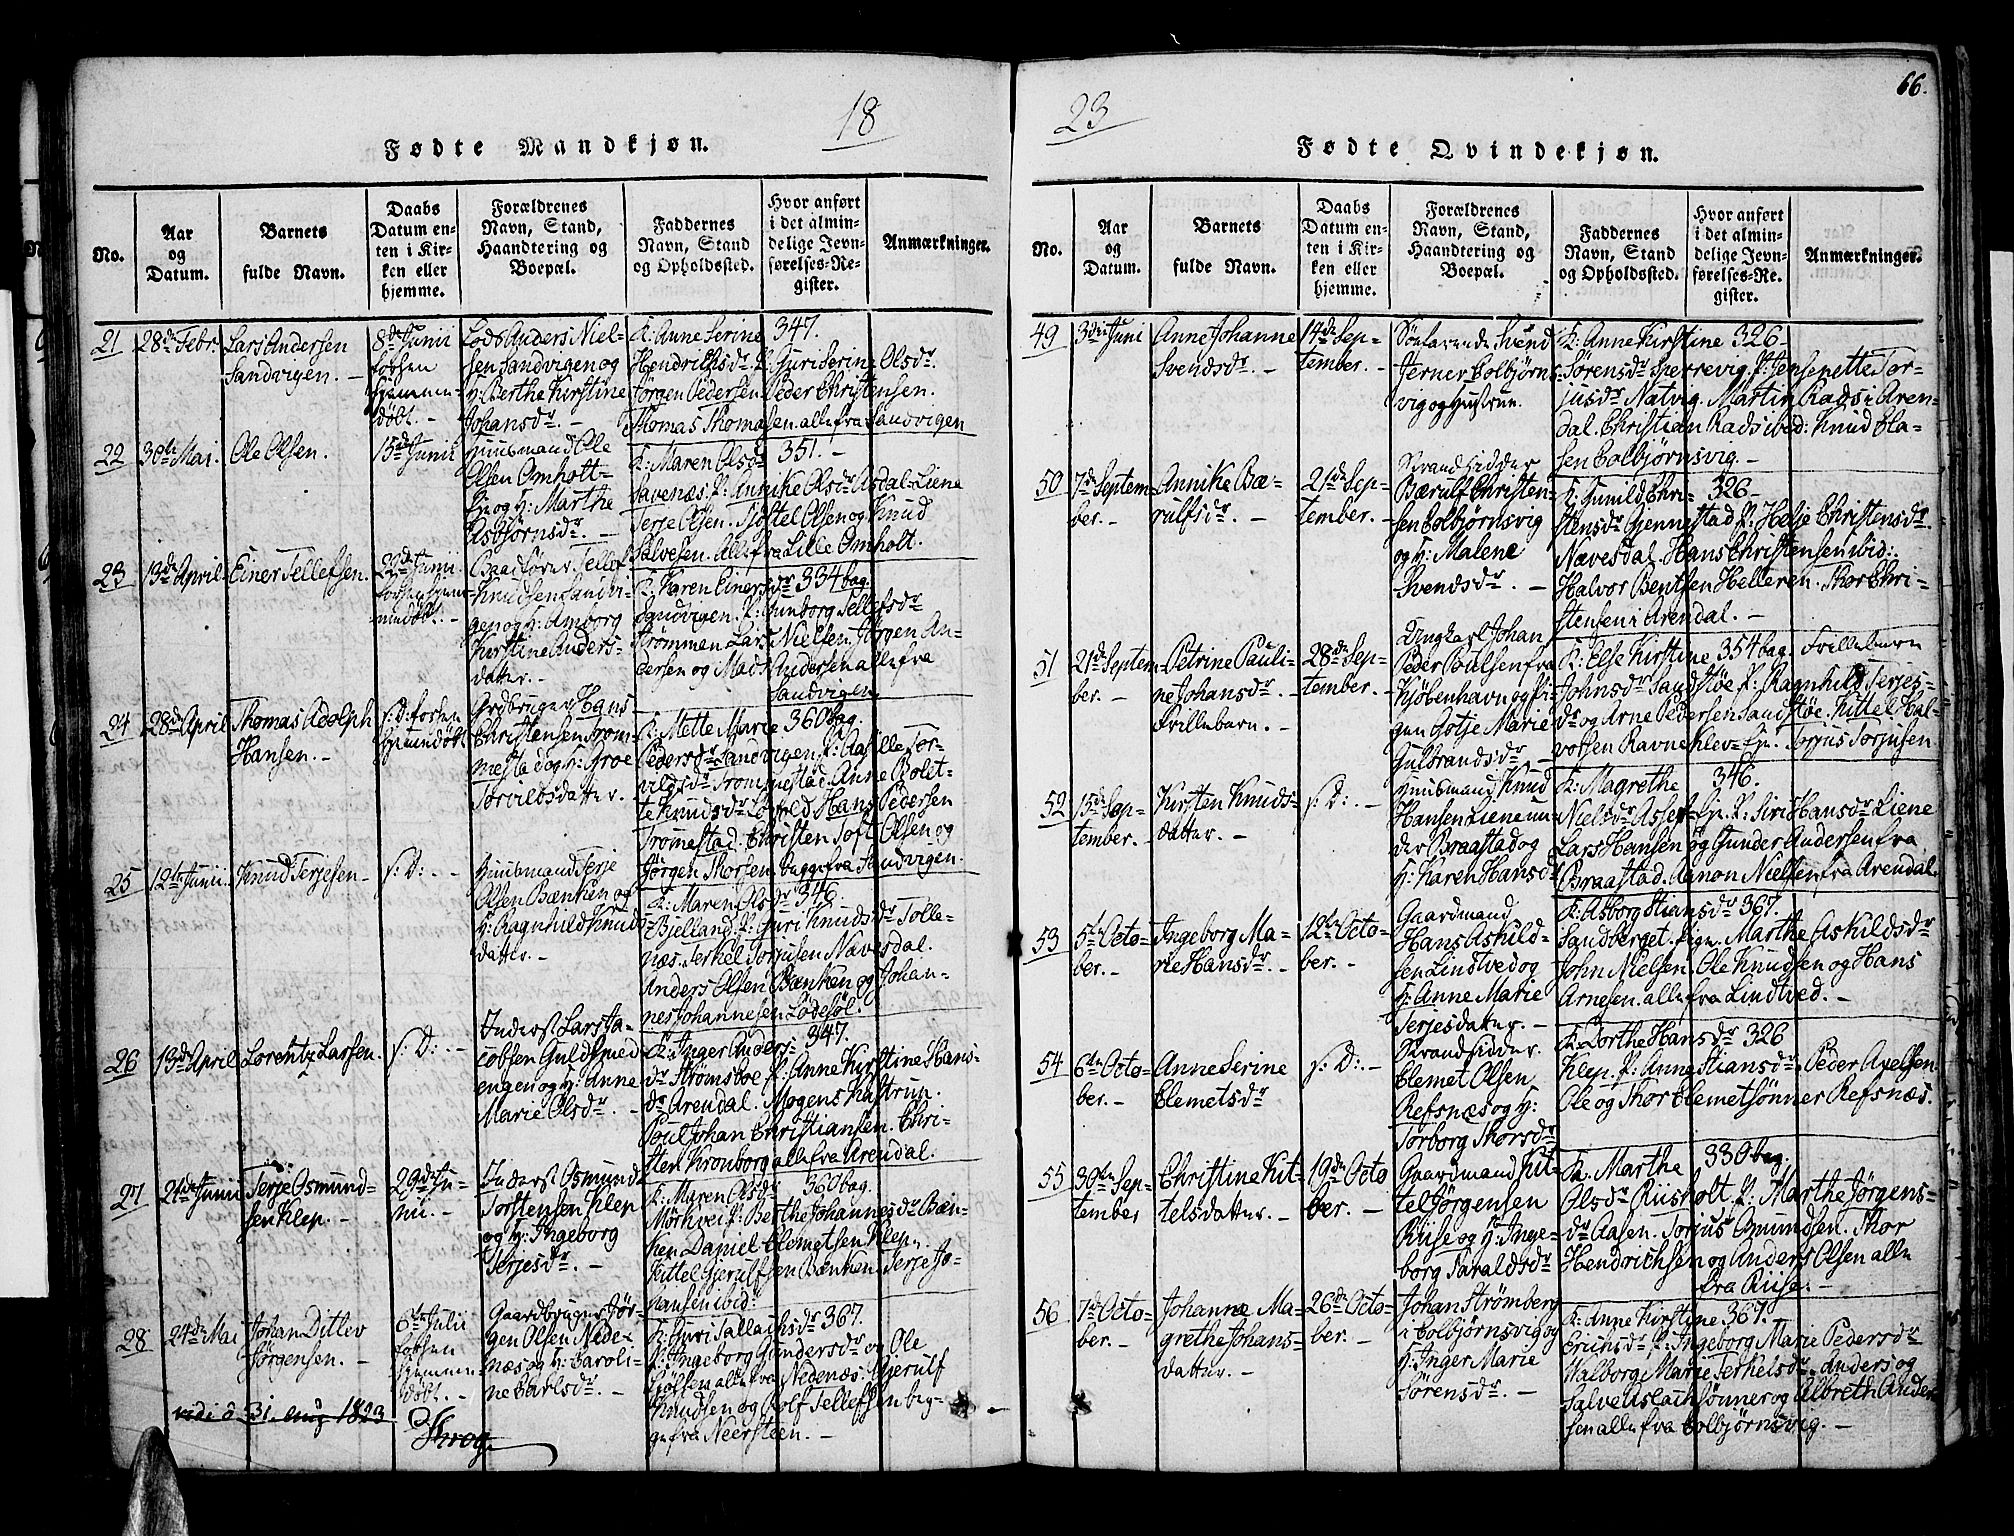 66.
18
Fødte Mandkjøn.
No.
Aar og Datum.
Barnets fulde Navn.
Daabs Datum enten i Kirken eller hjemme.
Forældrenes Navn, Stand, Haandtering og Boepæl.
Faddernes Navn, Stand og Opholdssted.
Hvor anført i det almindelige Jevnførelses-Register.
Anmærkninger.
21
28de Febr.
Lars Andersen
Sandvigen. –
8de Junii
forhen
hjemmen-
døbt. –
Lods Anders Niel-
sen Sandvigen og
H: Berthe Kirstine
Johansdr. –
K: Anne Serine 347.
Hendrichsdr. P: Guri Serin- Olsdr.
Jørgen Pedersen Peder Christensen.
Thomas Thomasen alle fra Sandvigen
22
30de Mai.
Ole Olsen.
15de Junii
Huusmand Ole
Olsen Omholt-
Eje og H: Marthe
Asbjørnsdr. –
K: Maren Olsdr 351. –
Savenæs. P: Annike Olsdr Asdal-Liene
Terje Olsen. Kjøstel Olsen og Knud
Salvesen. Alle fra Lille Omholt.
23
13de April
Einer Tellefsen.
22de Junii
forhen hjem-
mendøbt. –
Baadfører Tellef
Knudsen Sandvi-
gen og H: Amborg
Kirstine Anders-
datter. –
K: Karen Einersdr 334 bag.
Sandvigen. P: Gunborg Tellefsdr
Strømmen Lars Nielsen, Jørgen An-
dersen og Mads Andersen alle fra
Sandvigen
24
28de April
Thomas Adolph
Hansen. –
s: D: forhen
hjemmdøbt
Jordbruger Hans
Christensen Trom-
mestad og H: Groe
Torvildsdatter.
K: Mette Marie 360 bag.
Pedersdr Sandvigen. P: Aasille Tor-
vildsdr Trommestad. Anne Bolet-
te Knudsdr Løfold Hans Pedersen
Tromestad. Christen Toft Olsen og
Jørgen Thorsen begge fra Sandvigen.
25
12te Junii.
Knud Terjesen –
s: D: –
Huusmand Terje
Olsen Bænken og
H: Ragnhild Knuds-
datter. –
K: Maren Olsdr 346 –
Bjelland. P: Guri Knudsdr Tolle-
næs. Terkel Torjusen Nævesdal.
Anders Olsen Bænken og Johan-
nes Johannesen Lødesøl.
26
13de April
Lorentz Larsen.
s: D: –
Inderst Lars Ja-
cobsen Guldsmed
engen og H: Anne
Marie Olsdr. –
K: Inger Anders- 347.
dr Strømsboe P: Anne Kirstine Hans-
dr Arendal. Mogens Kastrup.
Poul Johan Christiansen. Chri-
sten Kronborg alle fra Arendal.
27
21de Junii
Terje Osmund-
sen Klep. –
29de Ju-
nii. –
Inderst Osmund
Torstensen Klep
og H: Ingeborg
Terjesdr. –
K: Maren Olsdr 360 bag.
Mørkvei P: Berthe Johannesdr Bæn-
ken Daniel Clemetsen Klep.
Kittel Gjerulfsen Bænken. Terje Jo-
hansen ibid:
28
24de Mai
Johan Ditlev
Jørgensen. –
6te Julii
forhen
hjemmen-
døbt. –
Gaardbruger Jør-
gen Olsen Nede-
næs og H: Caroli-
ne Carlsdr. –
K: Guri Tallachsdr 367.
P: Ingeborg Gundersdr og Ole
Kjølsen alle fra Nedenæs. Gjerulf
Knudsen og Rolf Tellefsen beg-
ge fra Neersteen. –
vidi d 31. Aug 1823
Krog
23
Fødte Qvindekjøn.
No.
Aar og Datum.
Barnets fulde Navn.
Daabs Datum enten i Kirken eller hjemme.
Forældrenes Navn, Stand, Haandtering og Boepæl.
Faddernes Navn, Stand og Opholdssted.
Hvor anført i det almindelige Jevnførelses-Register.
Anmærkninger.
49
3die Juni
Anne Johanne
Svendsdr. –
14de Sep-
tember. –
Søefarende Svend
Jerner Colbjørns-
vig og Hustrue.
K: Anne Kirstine 326 –
Sørensdr Sperrevig. P: Jensenette Tor-
jusdr Natvig. Martin Rads i Aren-
dal. Christian Rads ibid: Knud Cla-
sen Colbjørnsvig. –
50
7de Septem
ber. –
Annike Bæ-
rulfsdr. –
21de Sep-
tember. –
Strandsidder
Bærulf Christen-
sen Colbjørnsvig
og H: Malene
Svendsdr. –
K: Gunild Chri- 326 –
stensdr Gjennestad P: Helje Christensdr.
Nævesdal. Hans Christensen ibid:
Halvor Bentsen Helleren. Thor Chri-
stensen i Arendal. –
51
21de Septem
ber. –
Petrine Pauli-
ne Johansdr. –
Frillebarn.
28de Sep-
tember. –
Ungkarl Johan
Peder Poulsen fra
Kjøbenhavn og Pi-
gen Gotje Marie
Gulbrandsdr –
K: Else Kirstine 354 bag. Frillebarn
Johnsdr Sandstøe. P: Ragnhild Terjes-
dr og Arne Pedersen Sandstøe. Kittel Hal-
vorsen Ravneklev-Eje. Torjus Torjusen
52
15de Sep-
tember. –
Kirsten Knuds-
datter. –
s: D: –
Huusmand Knud
Hansen Liene un-
der Braastad og
H: Karen Hansdr
K: Magrethe 346.
Nielsdr Assef-Eje. P: Siri Hansdr Liene
Lars Hansen og Gunder Andersen fra
Braastad. Aanon Nielsen fra Arendal.
53
5te Octo-
ber. –
Ingeborg Ma-
rie Hansdr. –
12te Octo-
ber. –
Gaardmand
Hans Askild-
sen Lindtved og
H: Anne Marie
Terjesdatter. –
K: Asborg Stiansdr 367.
Sandberget. Pigen Marthe Askildsdr
John Nielsen Ole Knudsen og Hans
Arnesen. alle fra Lindtved. –
54
6te Octo-
ber. –
Anne Serine
Clemetsdr
s: D: –
Strandsidder
Clemet Olsen
Refsnæs og H:
Torborg Thorsdr
K: Dorthe Hansdr 326
Klep. P: Anne Stiansdr. Peder Axelsen
Ole og Thor Clemetsønner Refsnæs.
55
30te Sep-
tember
Christine Kit-
telsdatter. –
19de Octo
ber. –
Gaardmand Kit-
tel Jørgensen
Riise og H: Inge-
borg Taraldsdr
K: Marthe 330 bag.
Olsdr Riisholt. P: Marthe Jørgens-
dr Aasen. Torjus Omundsen. Thor
Hendrichsen og Anders Olsen alle
fra Riise. –
56
7de Octo-
ber. –
Johanne Ma-
grethe Johans-
datter. –
26de Octo-
ber. –
Johan Strømberg
i Colbjørnsvig og
H: Inger Marie
Sørensdr. –
K: Anne Kirstine 367.
Erichsdr. P: Ingeborg Marie Pedersdr
Walborg Marie Terkelsdr. Anders og
Salve Isachsønner og Albreth Ander-
sen alle fra Colbjørnsvig. –